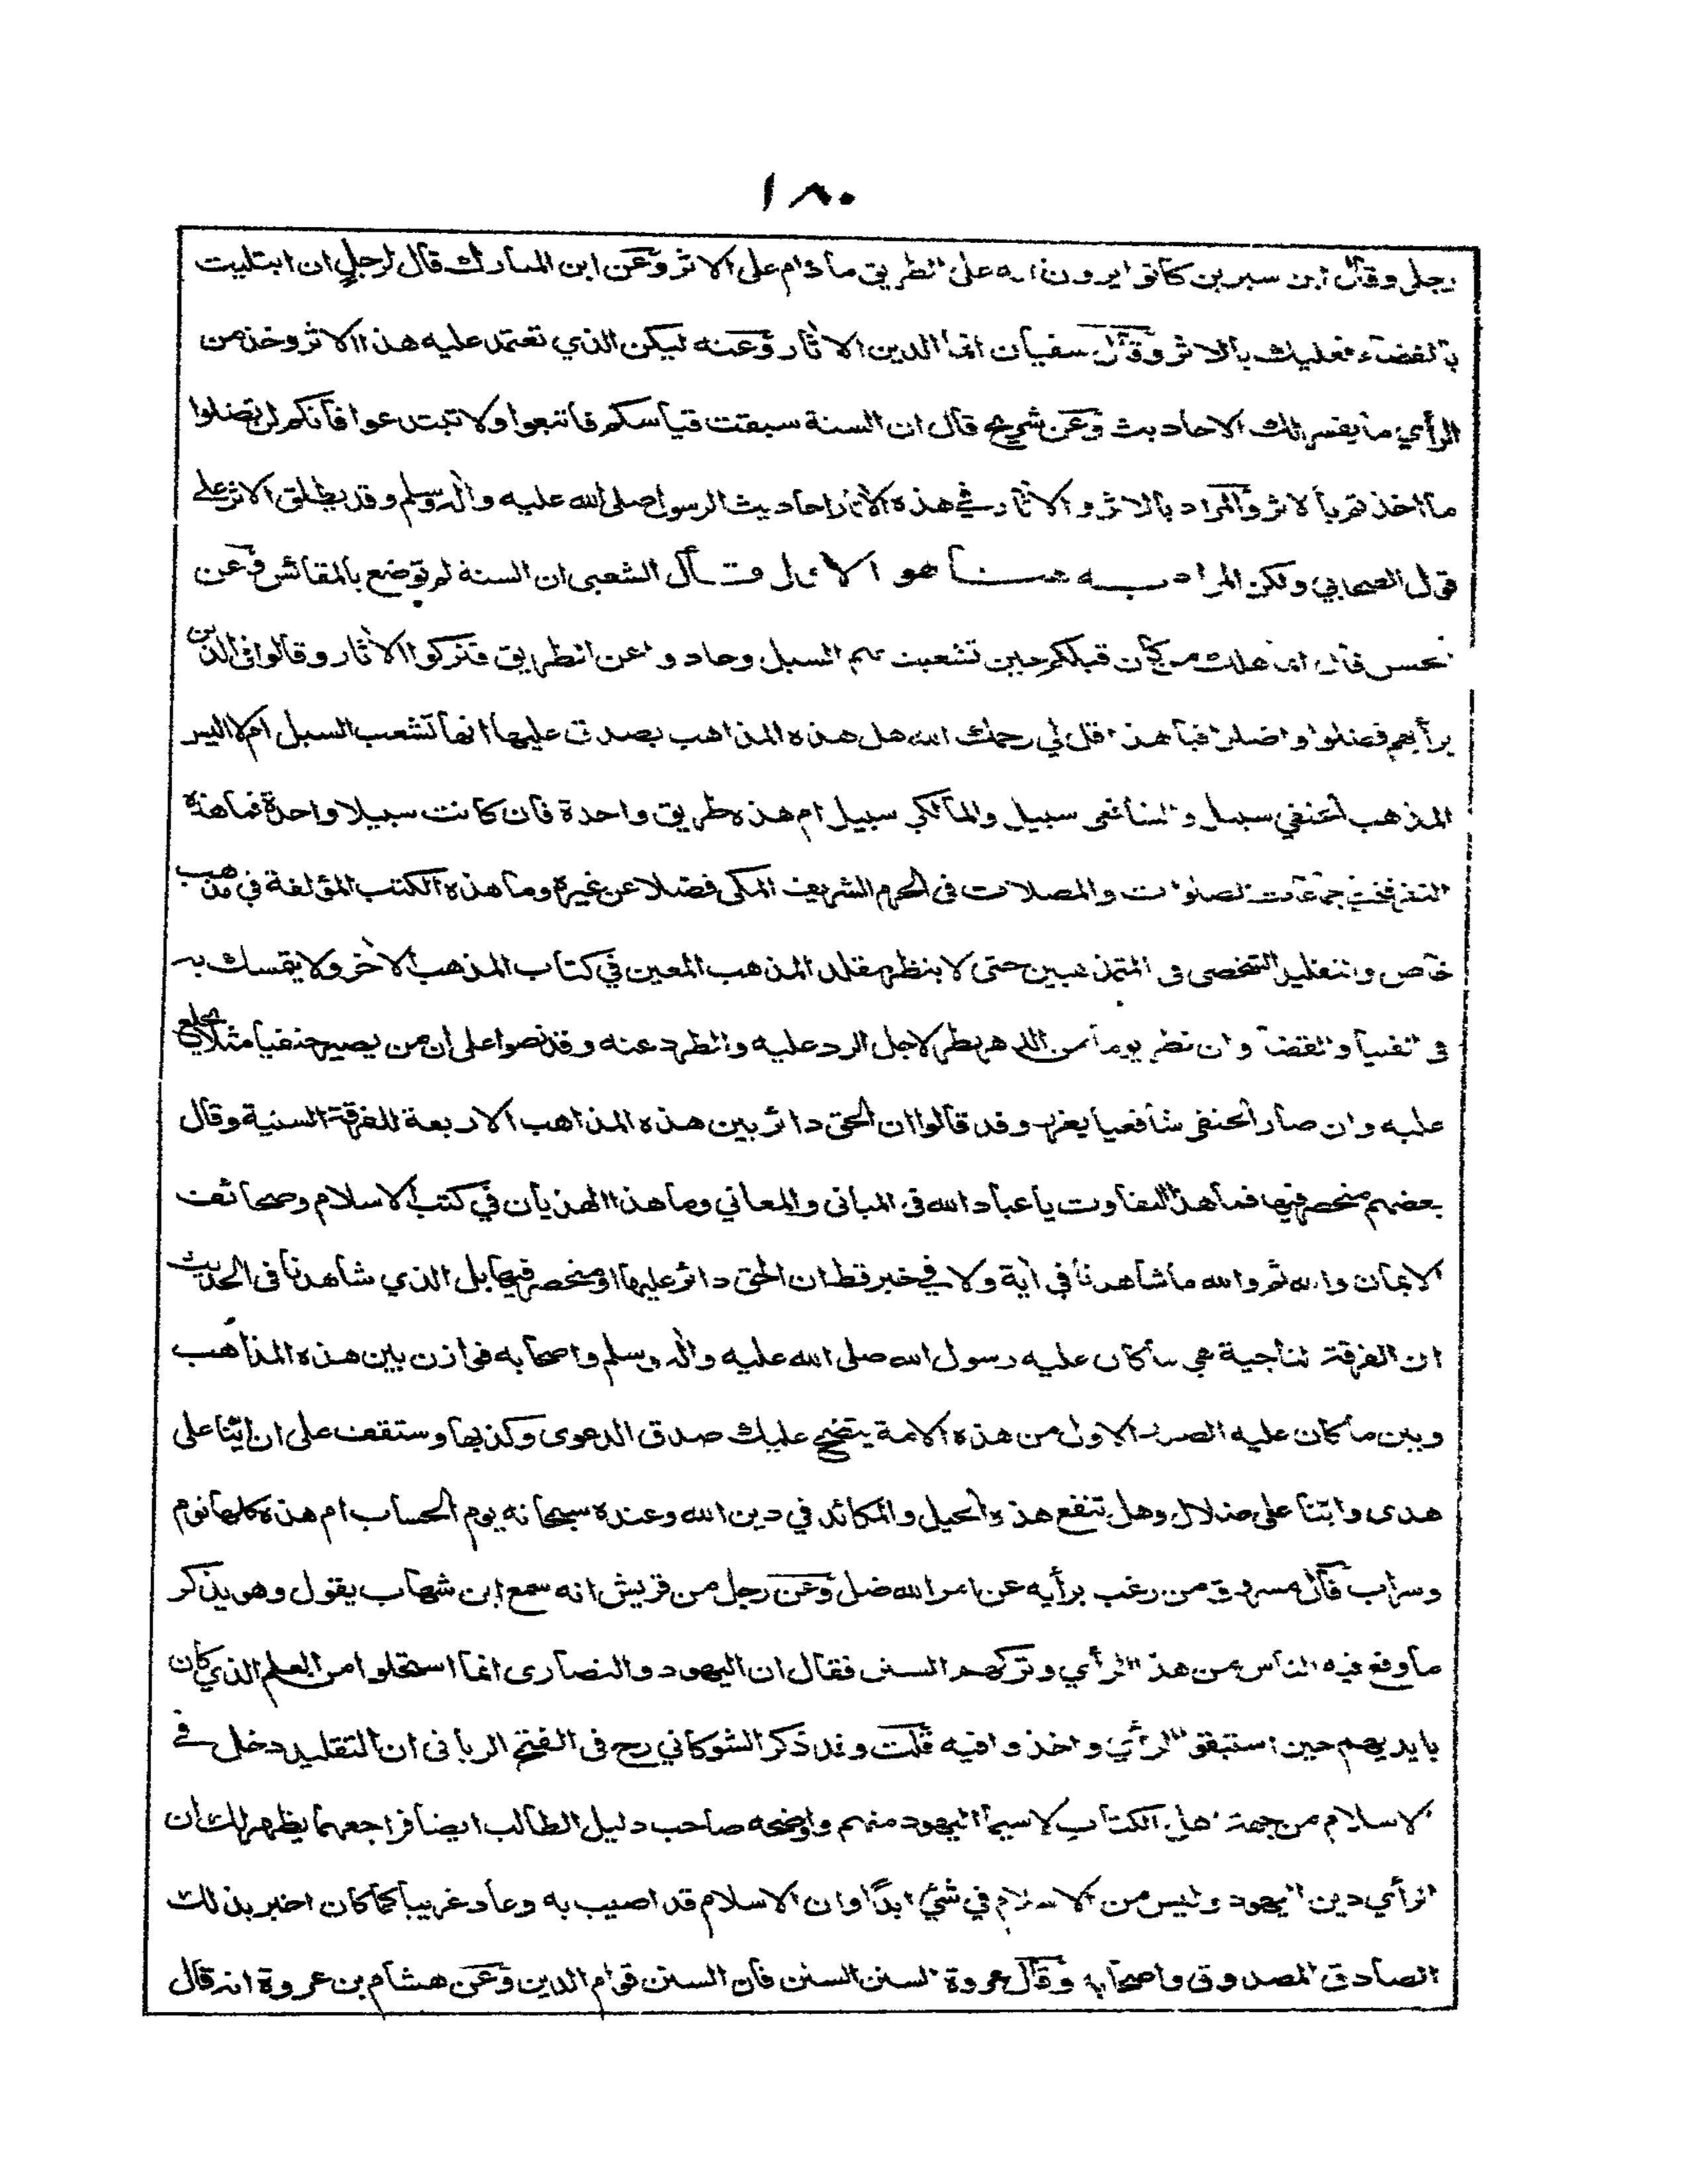 ١٨٠
رجلي وقال ابن سيرين كانوا يرون انه على الطريق مادام على الاثر وعن ابن المبارك قال لرجل ان ابتليت
بالقضاء فعليك بالاثر وقال سفيان انما الدين الآثار وعنه ليكن الذي تعتمد عليه هذا الاثر وخذ من
الرأي ما يفسر لك الاحاديث وعن شريح قال ان السنة سبقت قياسكم فاتبعوا ولا تبتدعوا فانكم لن تضلوا
ما اخذتم بالاثر والمراد بالاثر والآثار في هذه الآثار احاديث الرسول صلى الله عليه وآله وسلم وقد يطلق الاثر على
قول الصحابي ولكن المراد به هنا هو الاول قال الشعبي ان السنة لم توضع بالمقائس وعن
الحسن قال انما هلك من كان قبلكم حين تشعبت بهم السبل وحادوا عن الطريق فتركوا الآثار وقالوا في الدين
برأيهم فضلوا واضلوا فبالله هذا قل لي رحمك الله هل هذه المذاهب يصدق عليها انها تشعب السبل ام لا اليس
المذهب الحنفي سبيل والشافعي سبيل والمالكي سبيل ام هذه طريق واحدة فان كانت سبيلا واحدة فما هذه
التفرقة في جماعات الصلوات والمصلات في الحرم الشريف المكي فضلا عن غيره وما هذه الكتب المؤلفة في مذهب
خاص والتقليد الشخصي في المتمذهبين حتى لا ينظر مقلد المذهب المعين في كتاب المذهب الآخر ولا يتمسك به
في الفتيا والقضاء وان نظر يوما من الدهر نظر لاجل الرد عليه والطرد عنه وقد نصوا على ان من يصير حنفيا مثلا يخلع
عليه وان صار الحنفي شافعيا يعزر وقد قالوا ان الحق دائر بين هذه المذاهب الاربعة للفرقة السنية وقال
بعضهم منحصر فيها فما هذا التفاوت يا عباد الله في المباني والمعاني وما هذا الهذيان في كتب الاسلام وصحائف
الايمان والله ثم والله ما شاهدنا في آية ولا في خبر قط ان الحق دائر عليها او منحصر فيها بل الذي شاهدنا في الحديث
ان الفرقة الناجية هي ما كان عليه رسول الله صلى الله عليه وآله وسلم واصحابه فوازن بين هذه المذاهب
وبين ما كان عليه الصدر الاول من هذه الامة يتضح عليك صدق الدعوى وكذبها وستقف على ان ايّنا على
هدى وايّنا على ضلال وهل تنفع هذه الحيل والمكائد في دين الله وعنده سبحانه يوم الحساب ام هذه كلها نوم
وسراب قال مسروق من رغب برأيه عن امر الله ضل وعن رجل من قريش انه سمع ابن شهاب يقول وهو يذكر
ما وقع فيه الناس من هذا الرأي وتركهم السنن فقال ان اليهود والنصارى انما استحلوا من العلم الذي كان
بايديهم حين استبقوا الرأي واخذوا فيه قلت وقد ذكر الشوكاني رح في الفتح الرباني ان التقليد دخل في
الاسلام من جهة اهل الكتاب لاسيما اليهود منهم واوضحه صاحب دليل الطالب ايضا فراجعهما يظهر لك ان
الرأي دين اليهود وليس من الاسلام في شيء ابدًا وان الاسلام قد اصيب به وعاد غريبا كما كان اخبر بذلك
الصادق المصدوق واصحابه وقال عروة السنن السنن فان السنن قوام الدين وعن هشام بن عروة انه قال